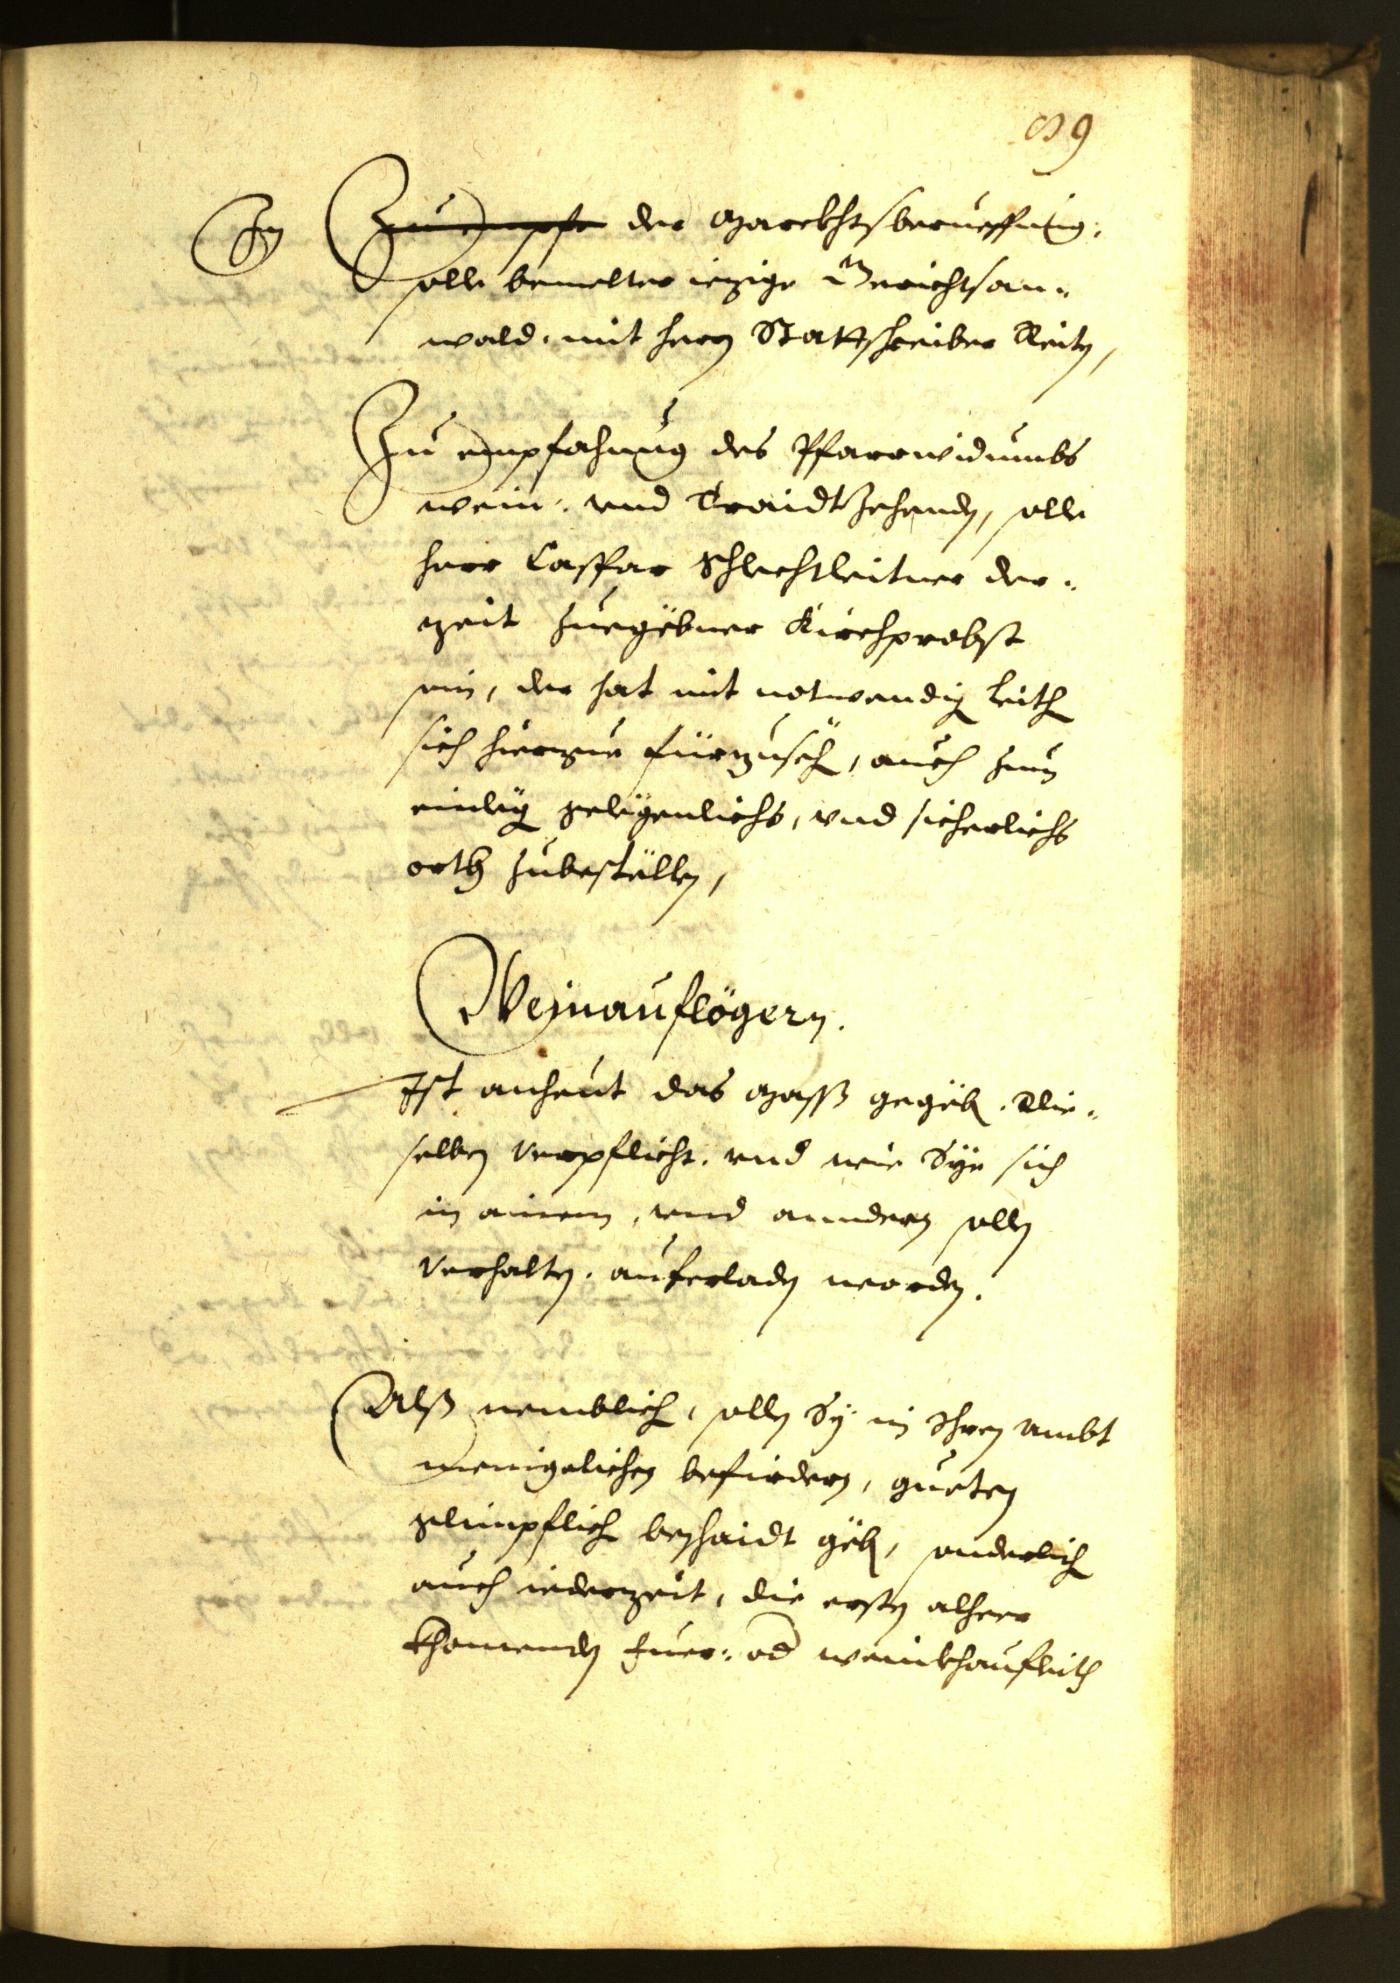 89
In Zu empfa der Marckhtsberueffung,
solle bemelter iezige Gerichtsan-
wald, mit herrn Stattschreiber Reitn,
Zu empfahung des Pfarrwidumbs
wein- und Traidt Zehendn, solle
herr Caspar Schlechtleitner der-
zeit Zuegëbner Kirchprobst
sein, der hat mit notwendig leith
sich hierzue fürzusëh, auch zum
einleg gelegenlichs, und sicherlichs
orth Zubestellen,
Weinauflögern.
Ist anheut das Mass gegëb. Die-
selben verpflicht. und wie Sÿe sich
in ainem, und anndern solln
verhalten. auferladn worden.
Alß nemblich, solln Sÿ in Ihren Ambt
menigelichen befürdern, gueten
glimpflich beschaidt gëb, sonderlich
auch iederzeit, die ersten alheer
khomenden Fuer- od weinkhaufleith